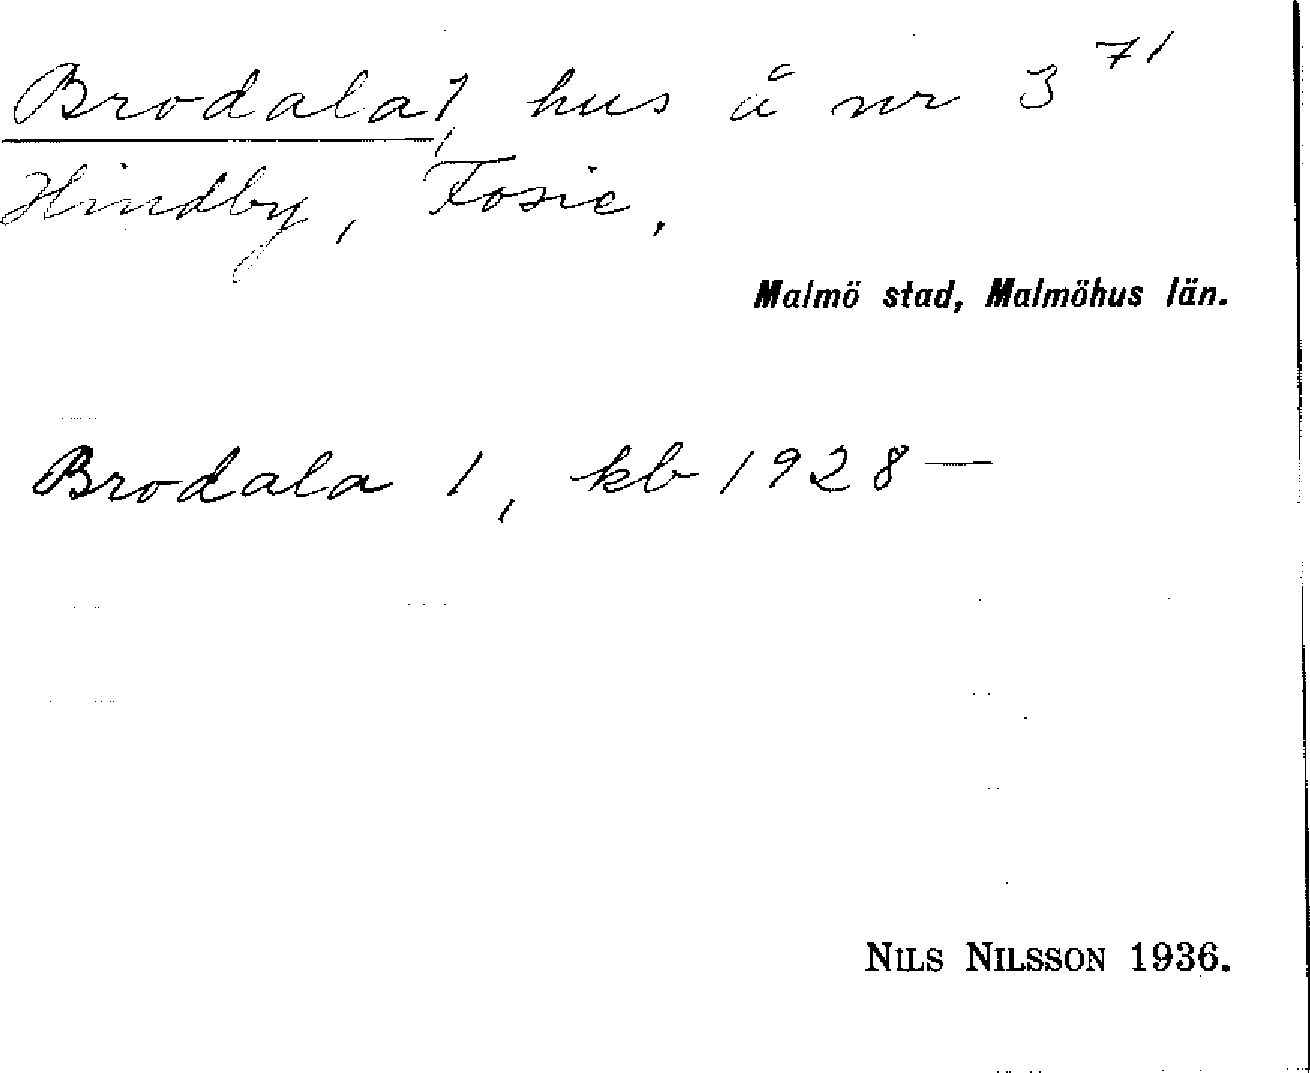 Brodala 1, hus å nr 3 71
Hindby, Fosie.
Malmö stad, Malmöhus län.
Brodala 1, kb 1928—
NILS NILSSON 1936.